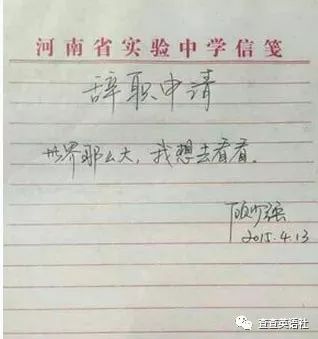 河南省实验中学信笺
辞职申请
世界那么大，我想去看看。
顾少强
2015.4.13
查查英语社